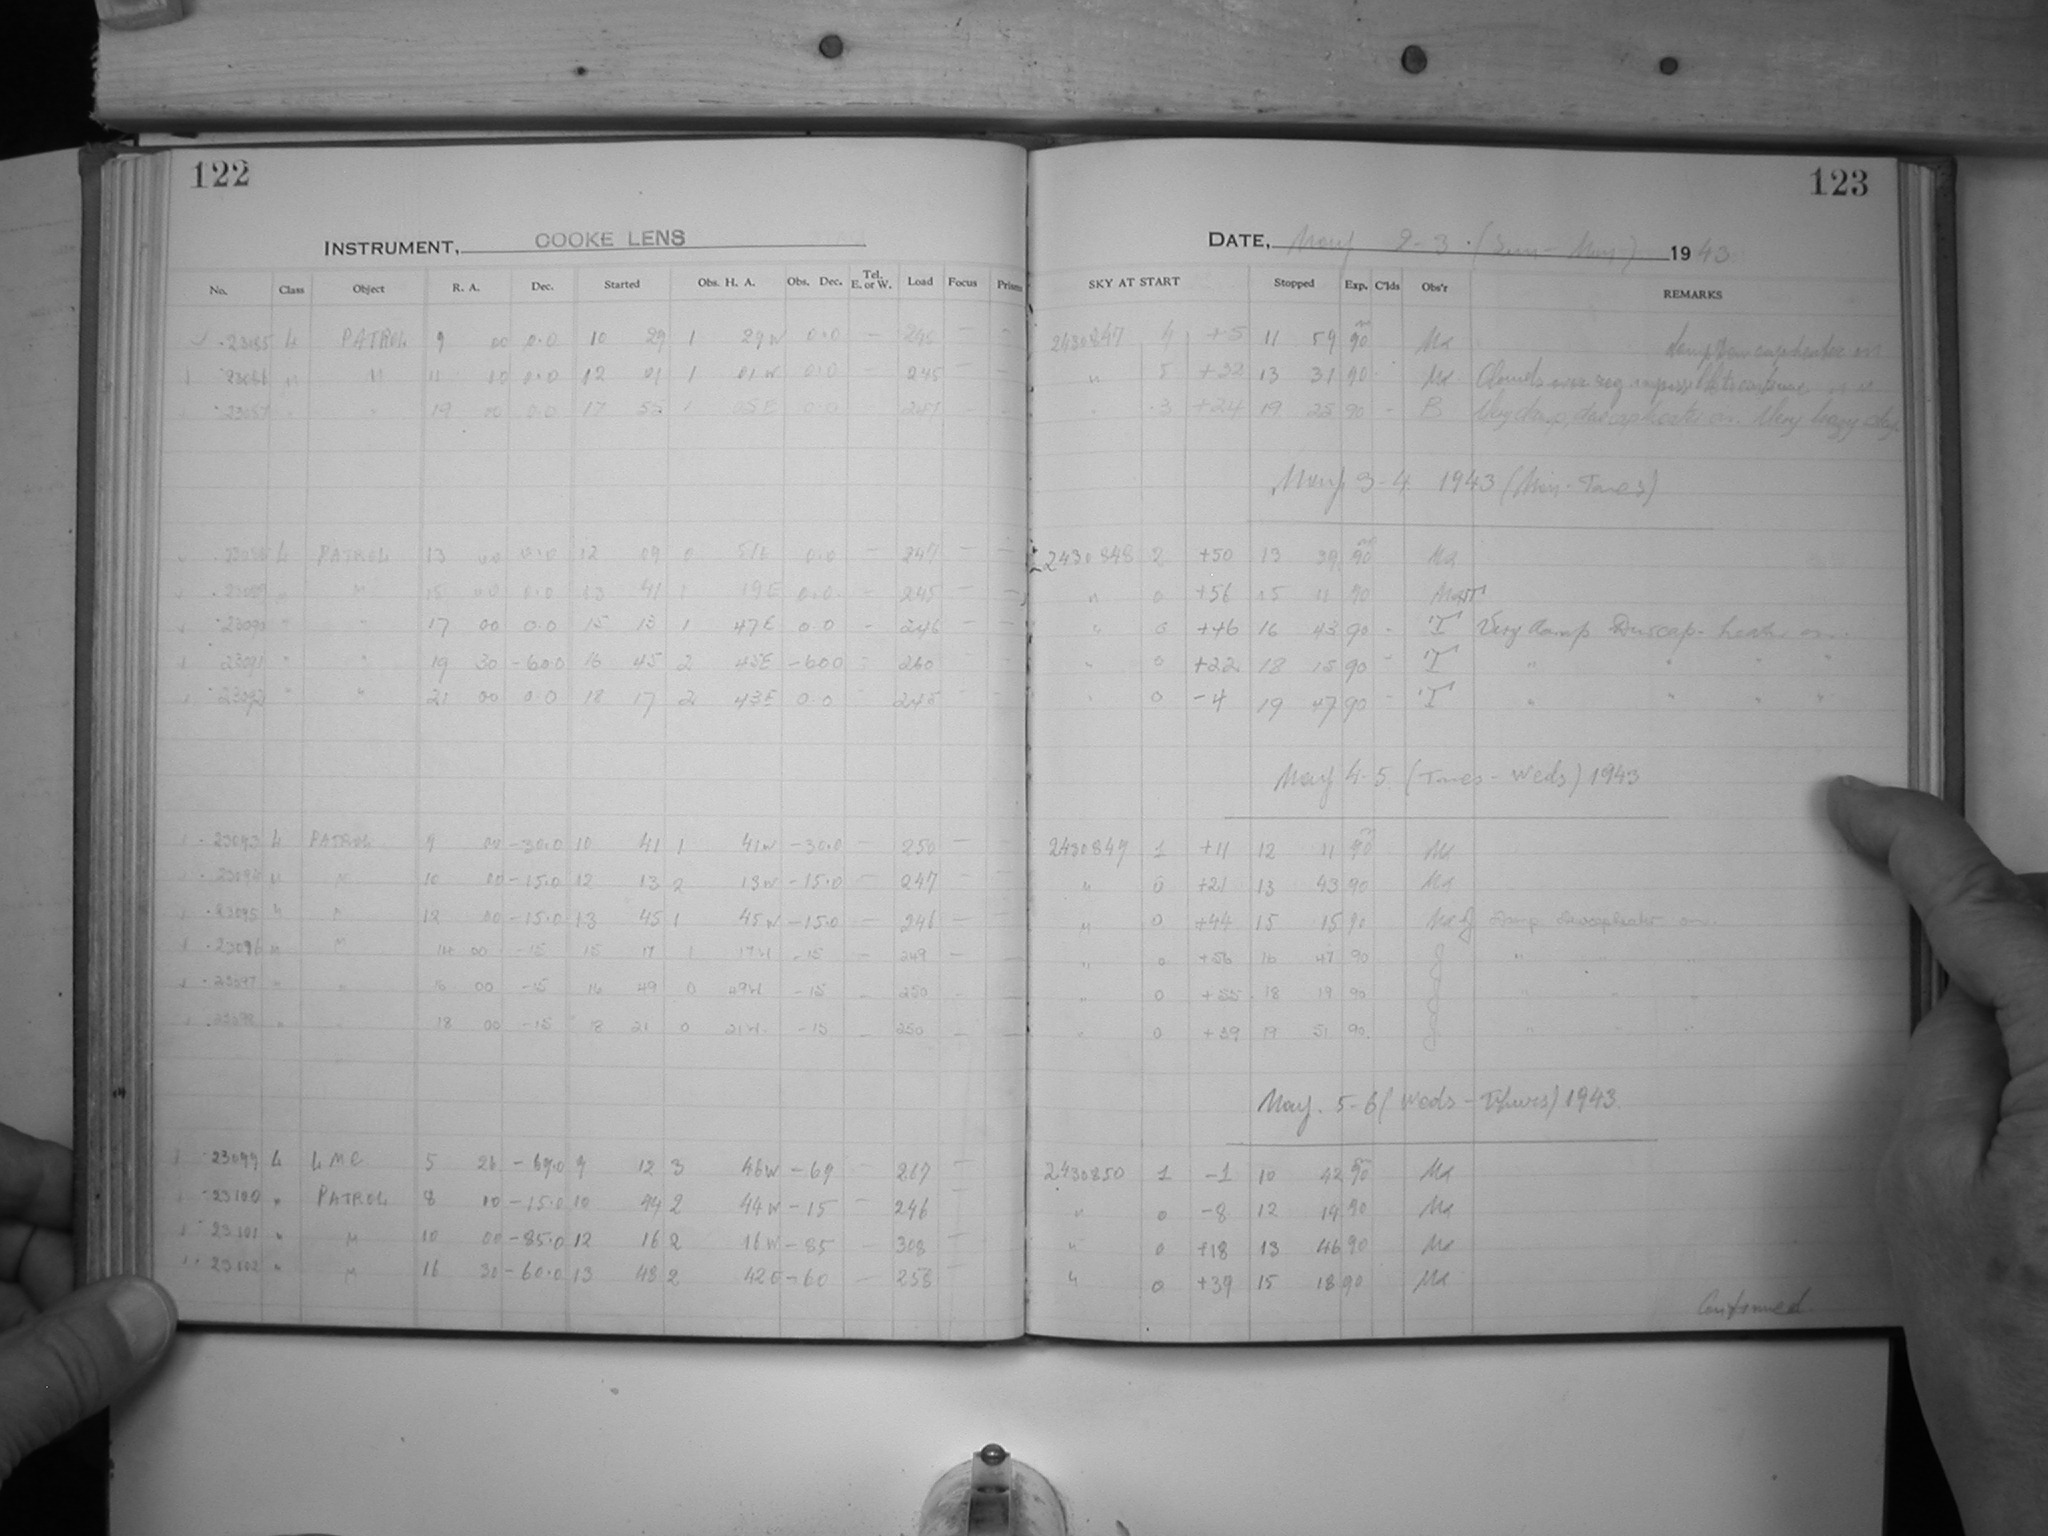 122
123
INSTRUMENT, COOKE LENS
DATE, May 2-3 (Sun - Mon) 1943
No. Class Object R. A. Dec. Started Obs. H. A. Obs. Dec. Tel. E. or W. Load Focus Prism SKY AT START Stopped Exp. C'lds Obs'r REMARKS
23085 L PATROL 9 00 0.0 10 29 1 29W 0.0 — 245 — — 2430847 4 +5 11 59 90 Ma
23086 " " 11 00 0.0 12 01 1 01W 0.0 — 245 — — " 5 +32 13 31 90 Ma Clouds over
23087 " " 19 00 0.0 17 55 1 05E 0.0 — 247 — — " 3 +24 19 25 90 - B Very damp, dewcap heater on. Very hazy
May 3-4 1943 (Mon-Tues)
23088 L PATROL 13 00 0.0 12 09 0 51E 0.0 — 247 — — 2430848 2 +50 13 39 90 Ma
23089 " " 15 00 0.0 13 41 1 19E 0.0 — 245 — — " 0 +56 15 11 90
23090 " " 17 00 0.0 15 13 1 47E 0.0 — 246 — — " 0 +46 16 43 90 - T Very damp Dewcap-heater on.
23091 " " 19 30 -60.0 16 45 2 45E -60.0 — 260 — — " 0 +22 18 15 90 - T " " " "
23092 " " 21 00 0.0 18 17 2 43E 0.0 — 245 — — " 0 -4 19 47 90 - T " " " "
May 4-5 (Tues - Weds) 1943
23093 L PATROL 9 00 -30.0 10 41 1 41W -30.0 — 250 — — 2430849 1 +11 12 11 90 Ma
23094 " " 10 00 -15.0 12 13 2 13W -15.0 — 247 — — " 0 +21 13 43 90 Ma
23095 " " 12 00 -15.0 13 45 1 45W -15.0 — 246 — — " 0 +44 15 15 90 Ma J Damp dewcapheater on.
23096 " " 14 00 -15 15 17 1 17W -15 — 249 — — " 0 +56 16 47 90 J " " "
23097 " " 16 00 -15 16 49 0 49W -15 — 250 — — " 0 +55 18 19 90 J " " "
23098 " " 18 00 -15 18 21 0 21W -15 — 250 — — " 0 +39 19 51 90 J " "
May. 5-6 (Weds - Thurs) 1943.
23099 L LMC 5 26 -69.0 9 12 3 46W -69 — 267 — 2430850 1 -1 10 42 90 Ma
23100 " PATROL 8 00 -15.0 10 44 2 44W -15 — 246 — " 0 -8 12 14 90 Ma
23101 " " 10 00 -85.0 12 16 2 16W -85 — 308 — " 0 +18 13 46 90 Ma
23102 " " 16 30 -60.0 13 48 2 42E -60 — 258 — " 0 +39 15 18 90 Ma
Continued